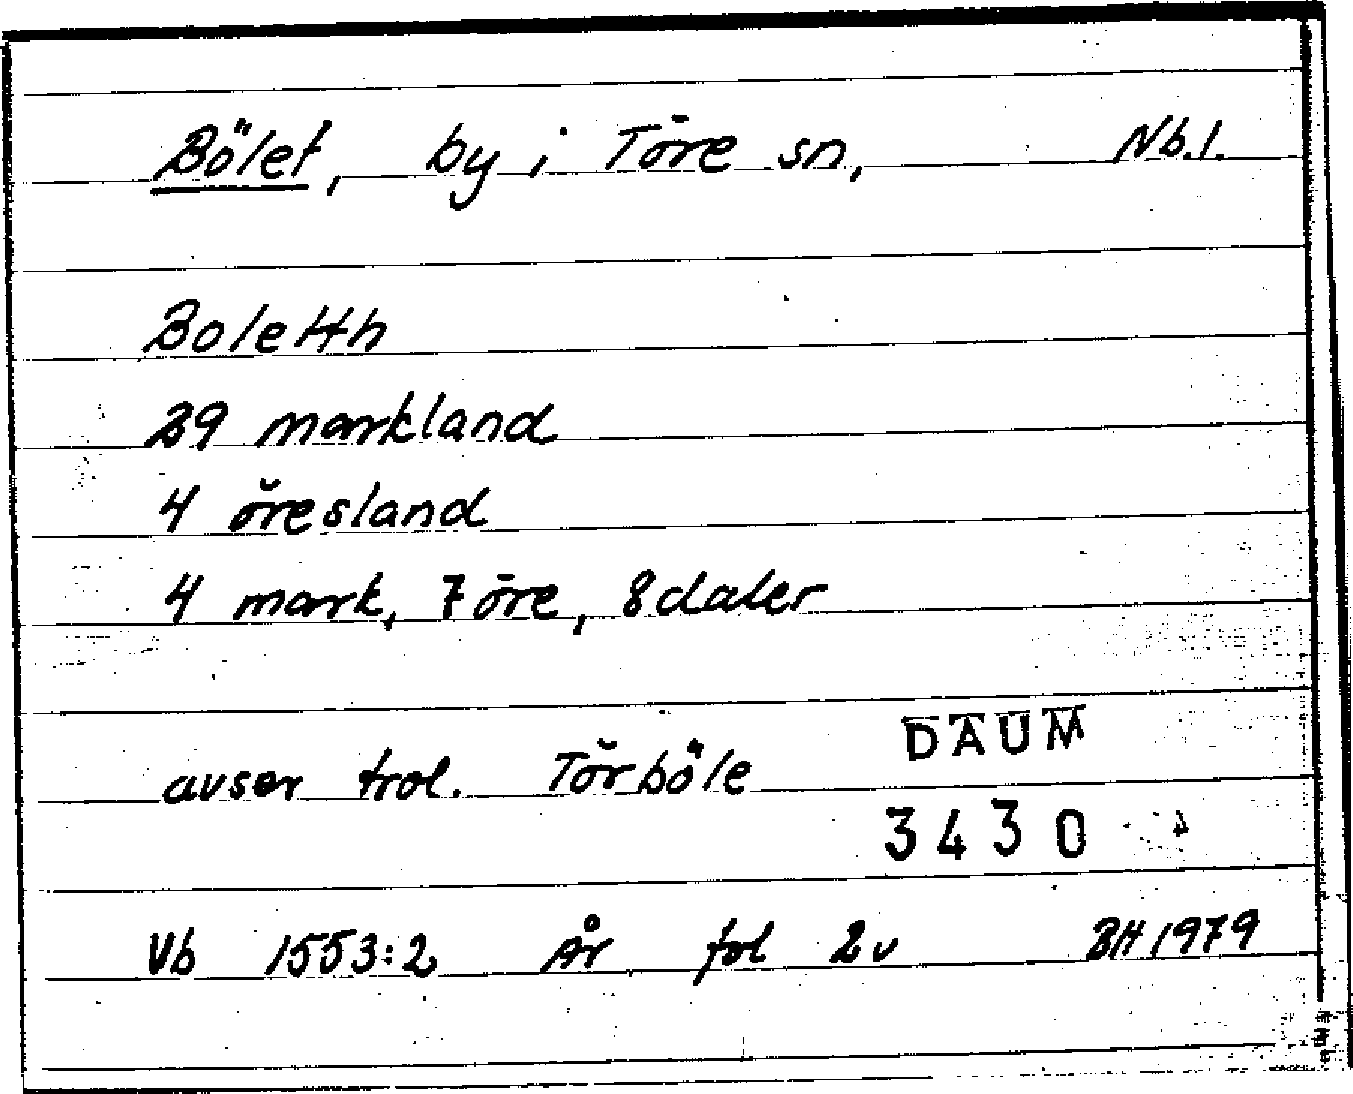 Bölet, by i Töre sn, Nb.l.
Boletth
29 markland
4 öresland
4 mark, 7 öre, 8 daler
avser trol. Törböle
DAUM
3430
Vb 1553:2 År fol 2v BH 1979